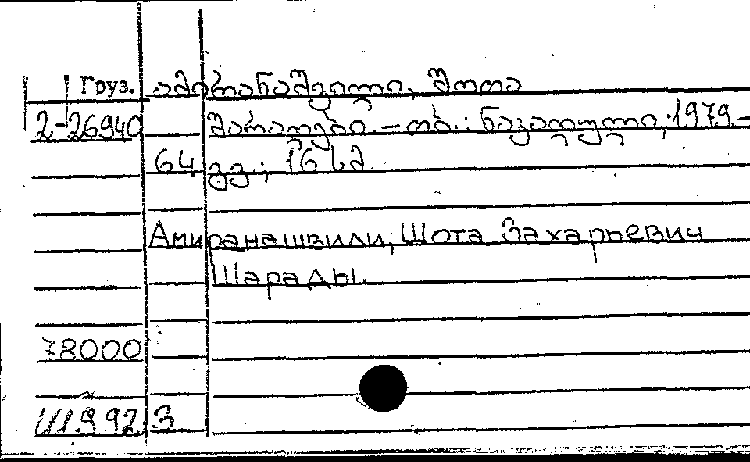 Груз. ამირანაშვილი, შოთა
2-26940 შარადები. – თბ.: ნაკადული, 1979. –
64 გვ.; 16 სმ.
Амиранашвили, Шота Захарьевич
Шарады.
78000
Ш1992 3